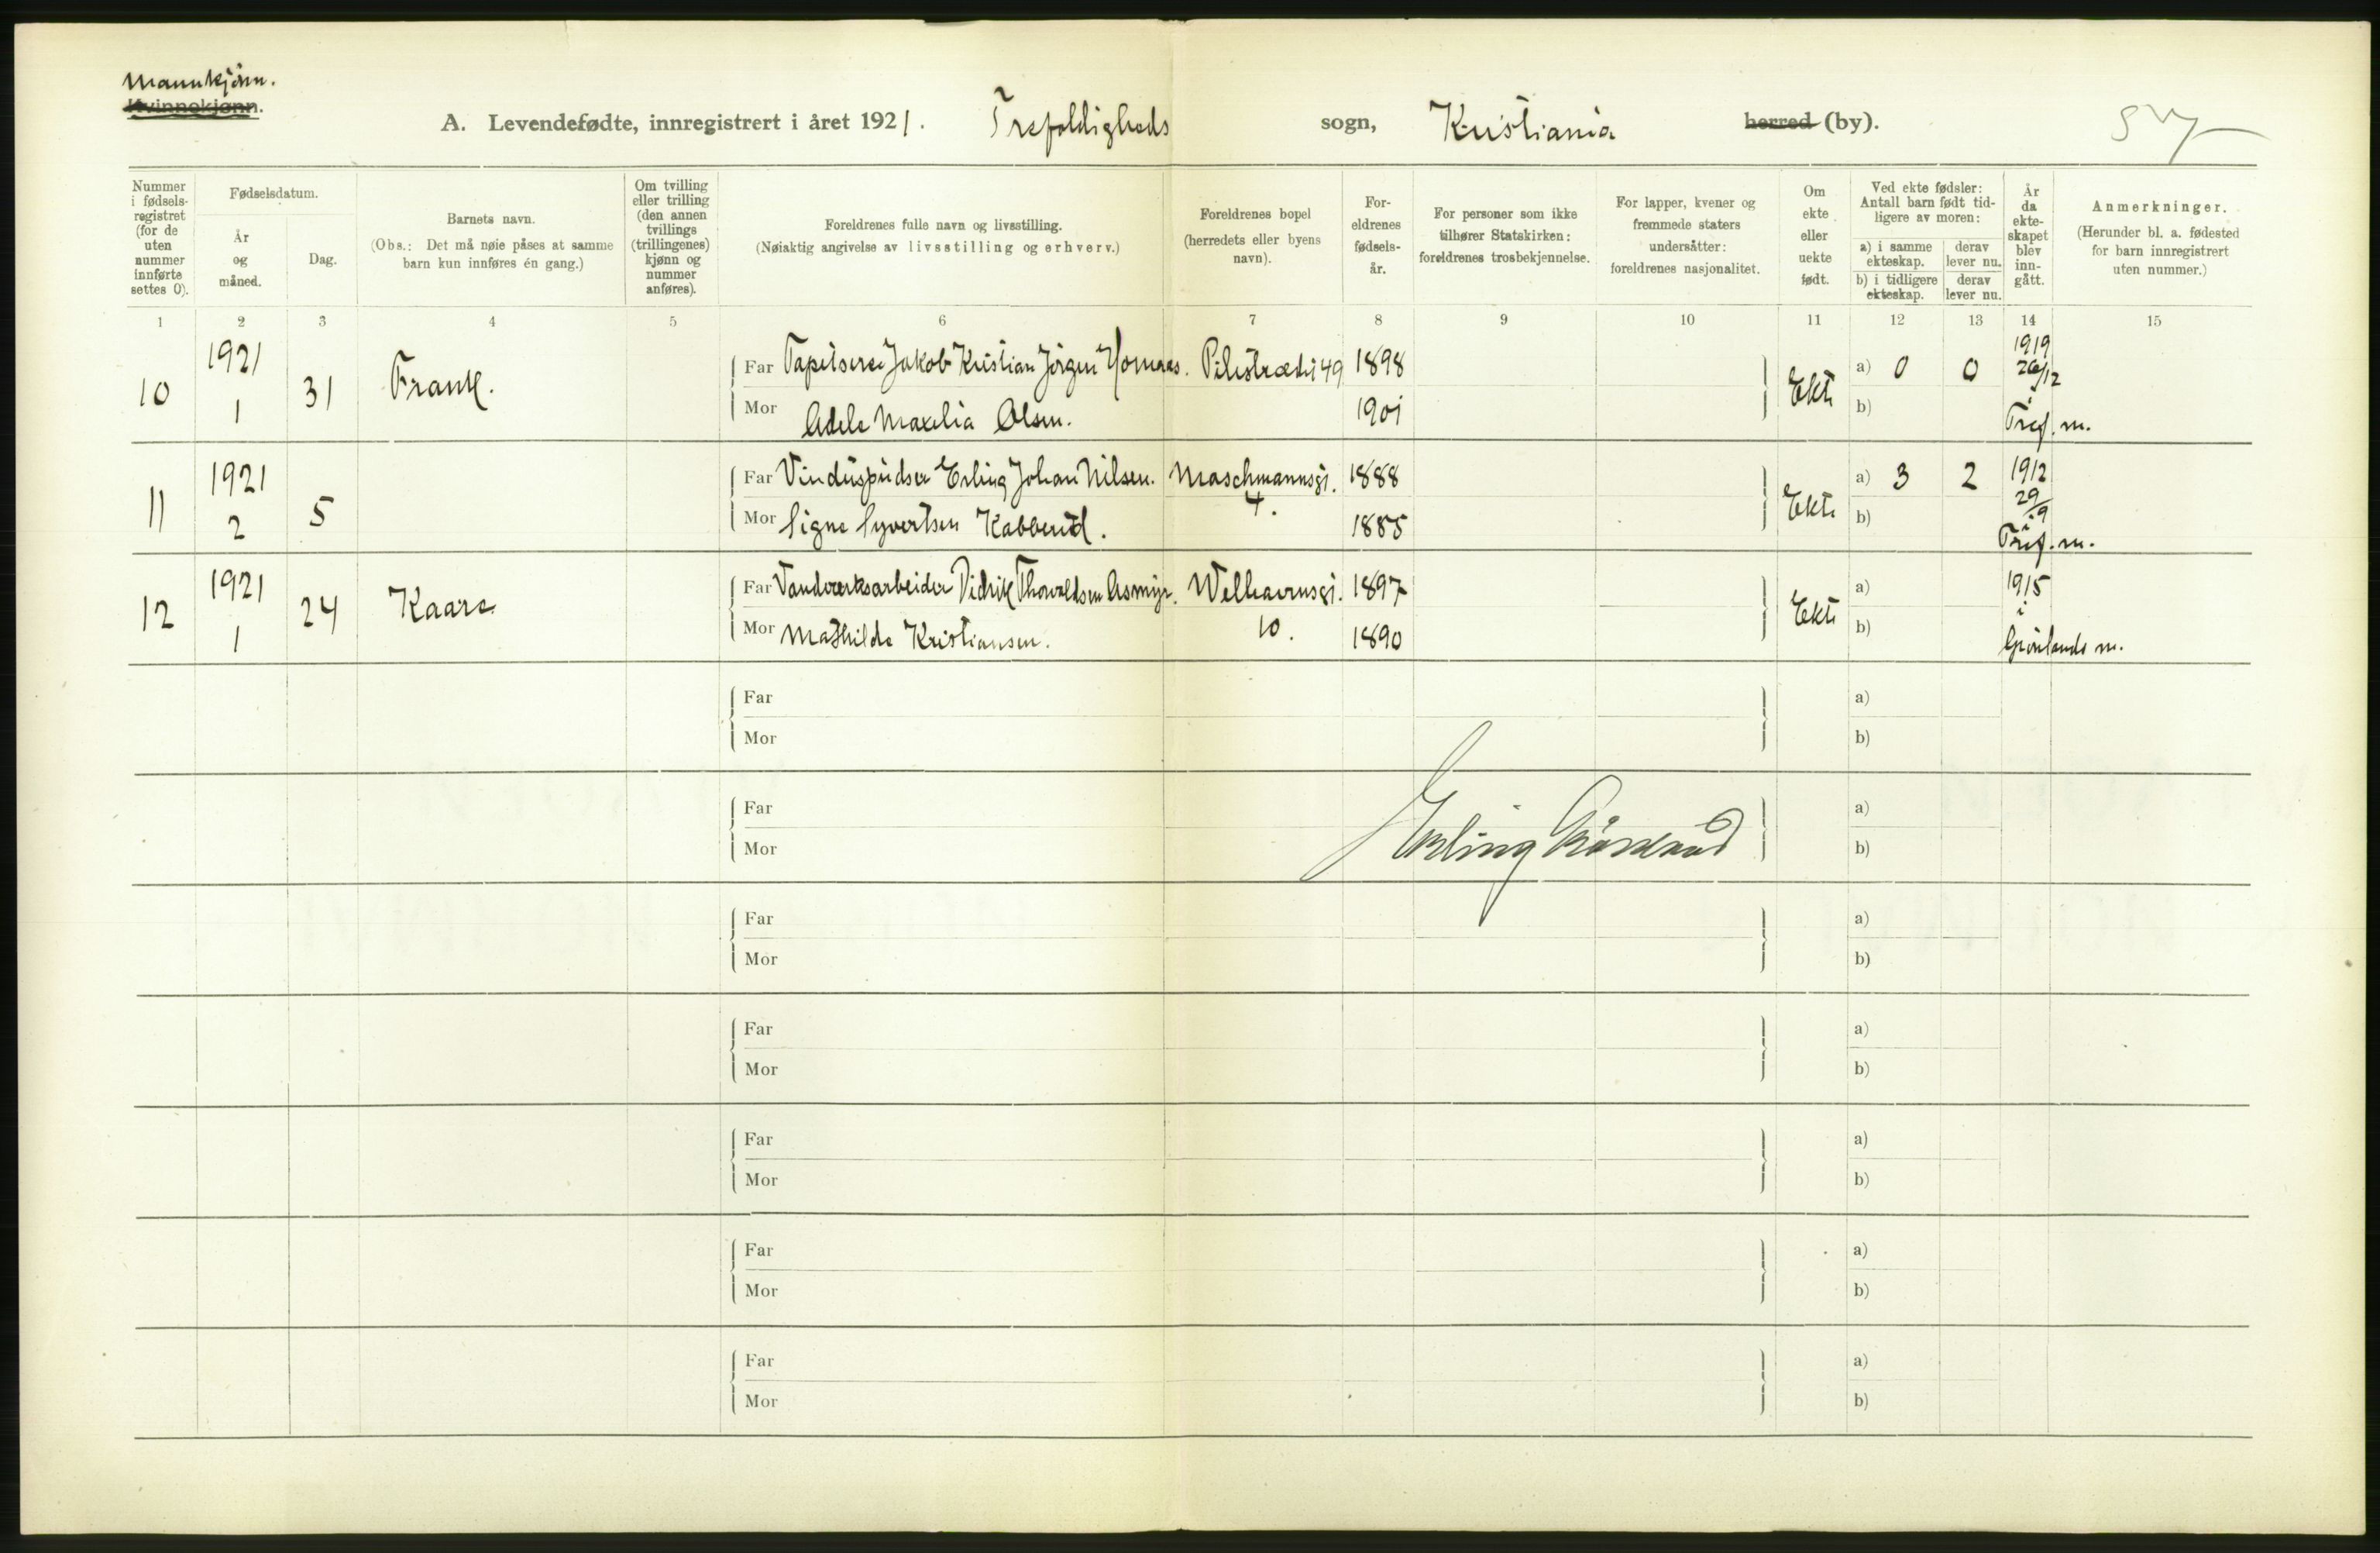 Mannkjønn.
Kvinnekjønn.
A. Levendefødte, innregistrert i året 1921. Trefoldigheds sogn, Kristiania herred (by).
Nummer i fødselsregistret (for de uten nummer innførte settes 0).
Fødselsdatum.
År og måned.
Dag.
Barnets navn.
(Obs.: Det må nøie påses at samme barn kun innføres én gang.)
Om tvilling eller trilling (den annen tvillings (trillingenes) kjønn og nummer anføres).
Foreldrenes fulle navn og livsstilling.
(Nøiaktig angivelse av livsstilling og erhverv.)
Foreldrenes bopel (herredets eller byens navn).
Foreldrenes fødselsår.
For personer som ikke tilhører Statskirken: foreldrenes trosbekjennelse.
For lapper, kvener og fremmede staters undersåtter: foreldrenes nasjonalitet.
Om ekte eller uekte født.
Ved ekte fødsler: Antall barn født tidligere av moren:
a) i samme ekteskap. derav lever nu.
b) i tidligere ekteskap. derav lever nu.
År da ekteskapet blev inngått.
Anmerkninger.
(Herunder bl. a. fødested for barn innregistrert uten nummer.)
1 2 3 4 5 6 7 8 9 10 11 12 13 14 15
10 1921 1 31 Frank. Far Tapetserer Jakob Kristian Jörgen Pilestrædet 49 1898 Ekte a) 0 0 1919 26/12 i Tref. m.
Mor Adele Maxelia Olsen. 1901 b)
11 1921 2 5 Far Vinduspudser Erling Johan Nilsen. Maschmannsgt. 4. 1888 Ekte a) 3 2 1912 29/9 i Tref. m.
Mor Signe Syvertsen Kabberud. 1885 b)
12 1921 1 24 Kaare Far Vandværksarbeider Didrik Thorvaldsen Asmyr. Welhavensgt. 10. 1897 Ekte a) 1915 i Grönlands m.
Mor Mathilde Kristiansen. 1890 b)
Far a)
Mor b)
Far a)
Mor Erling b)
Far a)
Mor b)
Far a)
Mor b)
Far a)
Mor b)
Far a)
Mor b)
Far a)
Mor b)